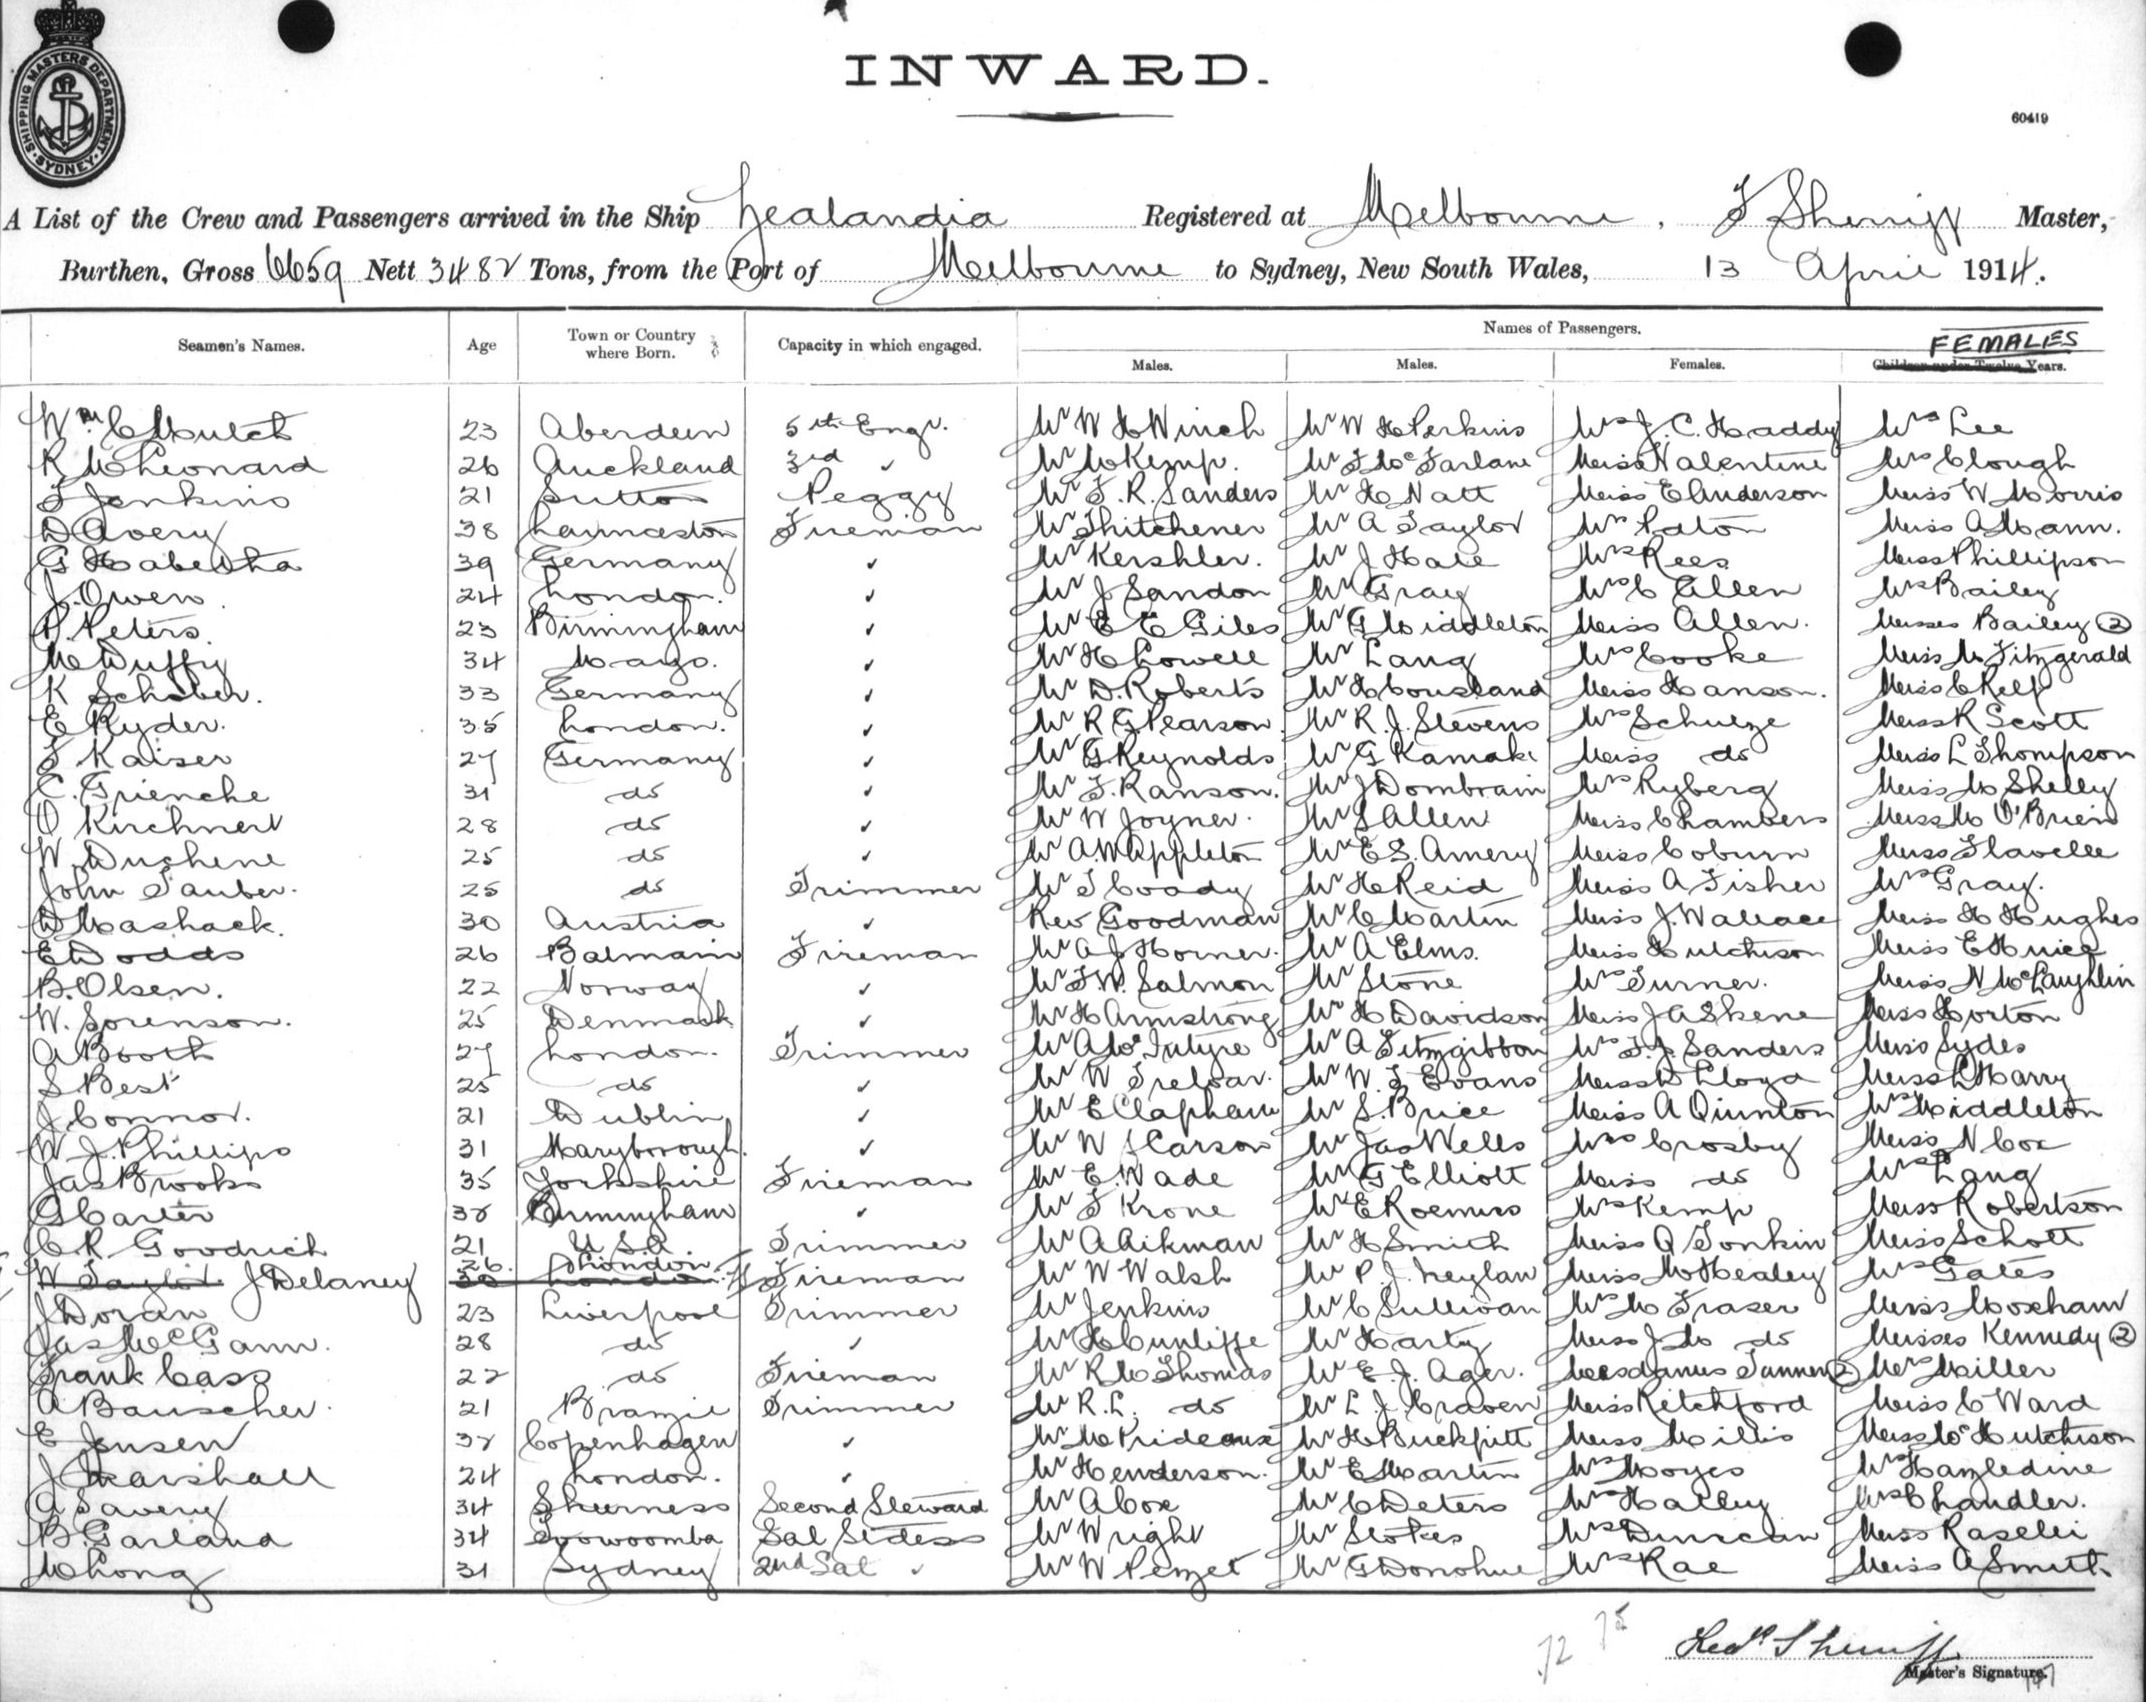 SHIPPING MASTERS DEPARTMENT SYDNEY
INWARD.
60419
A List of the Crew and Passengers arrived in the Ship Zealandia Registered at Melbourne, F Sherriff Master,
Burthen, Gross 6659 Nett 3482 Tons, from the Port of Melbourne to Sydney, New South Wales, 13 April 1914.
Seamen's Names. Age Town or Country where Born. Capacity in which engaged. Names of Passengers.
Males. Males. Females. Children under Twelve Years. FEMALES
Wm C Mutch 23 Aberdeen 5th Engr. Mr W H Winch Mr W H Perkins Mrs J. C. Haddy Mrs Lee
R McLeonard 26 Auckland 3rd ✓ Mr M Kemp. Mr F McFarlane Miss Valentine Mrs Clough
F Jenkins 21 Sutton Peggy Mr F. R. Sanders Mr H Natt Miss E Anderson Miss W Morris
D Avery 38 Launceston Fireman Mr Thitchener Mr A Taylor Mrs Paton Miss A Mann.
G Habestha 39 Germany ✓ Mr Kershler. Mr J Hale Mrs Rees Miss Phillipson
J. Owen 24 London. ✓ Mr J Sandon Mr Gray Mrs C Allen Mrs Bailey
P. Peters. 23 Birmingham ✓ Mr E E Giles Mr G Middleton Miss Allen. Misses Bailey (2)
M Duffy 34 Mayo. ✓ Mr H Lowell Mr Lang Mrs Cooke Miss M Fitzgerald
K Schober. 33 Germany ✓ Mr D. Roberts Mr H Cousland Miss Hanson. Miss C Relf
E Ryder. 35 London. ✓ Mr R G Pearson Mr R. J. Stevens Mrs Schulze Miss R Scott
F Kaiser 27 Germany ✓ Mr G. Reynolds Mr G Kamaki Miss do Miss L Thompson
C. Grienche 31 do ✓ Mr F. Ranson. Mr J Dombrain Mrs Ryberg Miss M Shelly
O Kirchnert 28 do ✓ Mr W Joyner. Mr S Allen Miss Chambers Miss M O'Brien
W. Duchene 25 do ✓ Mr A W Appleton Mr E. S. Amery Miss Coburn Miss Flavelle
John Tauber. 25 do Trimmer Mr T Coady Mr H Reid Miss A Fisher Mrs Gray.
D Mashack. 30 Austria ✓ Rev Goodman Mr C Martin Miss J. Wallace Miss H Hughes
E Dodds 26 Balmain Fireman Mr A J Horner. Mr A Elms. Miss Hutchison Miss E
B. Olsen. 22 Norway ✓ Mr F. W. Salmon Mr Stone Mrs Turner. Miss N McLaughlin
W. Sorenson. 25 Denmark ✓ Mr H Armstrong Mr H Davidson Miss J A Skene Miss Horton
A Booth 27 London. Trimmer Mr A McIntyre Mr A Fitzgibbon Mrs F. J. Sanders Miss Sydes
S Best 25 do ✓ Mr W Treloar. Mr W. F Evans Miss D Lloyd Miss L Harry
J Connor. 21 Dublin ✓ Mr E Clapham Mr S. Brice Miss A Quinton Mrs Middleton
W. J. Phillips 31 Maryborough. ✓ Mr W J Carson Mr Jas Wells Mrs Crosby Miss N Cox
Jas Brooks 35 Yorkshire Fireman Mr E. Wade Mr G Elliott Miss do Mrs Lang
G Carter 38 Birmingham ✓ Mr F Krone Mr E Roemuss Mrs Kemp Miss Robertson
C. R. Goodrich 21 U. S. A. Trimmer Mr A Aikman Mr H Smith Miss Q Tonkin Miss Schott
W Taylor J Delaney 30 26. London London Fireman Mr W Walsh Mr P. J. Neylan Miss M Healey Mrs Gates
J Doran 23 Liverpool Trimmer Mr Jenkins Mr C Sullivan Mrs M Fraser Miss Moxham
Jas McGann. 28 do ✓ Mr H Cunliffe Mr Harty Miss J. M do Misses Kennedy (2)
Frank Cass 22 do Fireman Mr R M Thomas Mr E. J. Ager. Mesdames Tanner (2) Mrs Miller
A Bauscher. 21 Brazil Trimmer Mr R. L. do Mr L. J. Craven Miss Ketchford Miss C Ward
E Jensen 32 Copenhagen ✓ Mr M Prideaux Mr H Buckpitt Miss Millis Miss M Hutchison
J Marshall 24 London. ✓ Mr Henderson. Mr E Martin Mrs Moyes Mrs Hazledine
A Savery 34 Sheerness Second Steward Mr A Cox Mr C Deters Mrs Halley Mrs Chandler.
B. Garland 34 Toowoomba Sal Stdess Mr Wright Mr Stokes Mrs Duncan Miss Raselei
M Long 31 Sydney 2nd Sal ✓ Mr W Penzet Mr G Donohue Mrs Rae Miss A Smith
72 75
Fredk Sherriff
Master's Signature.